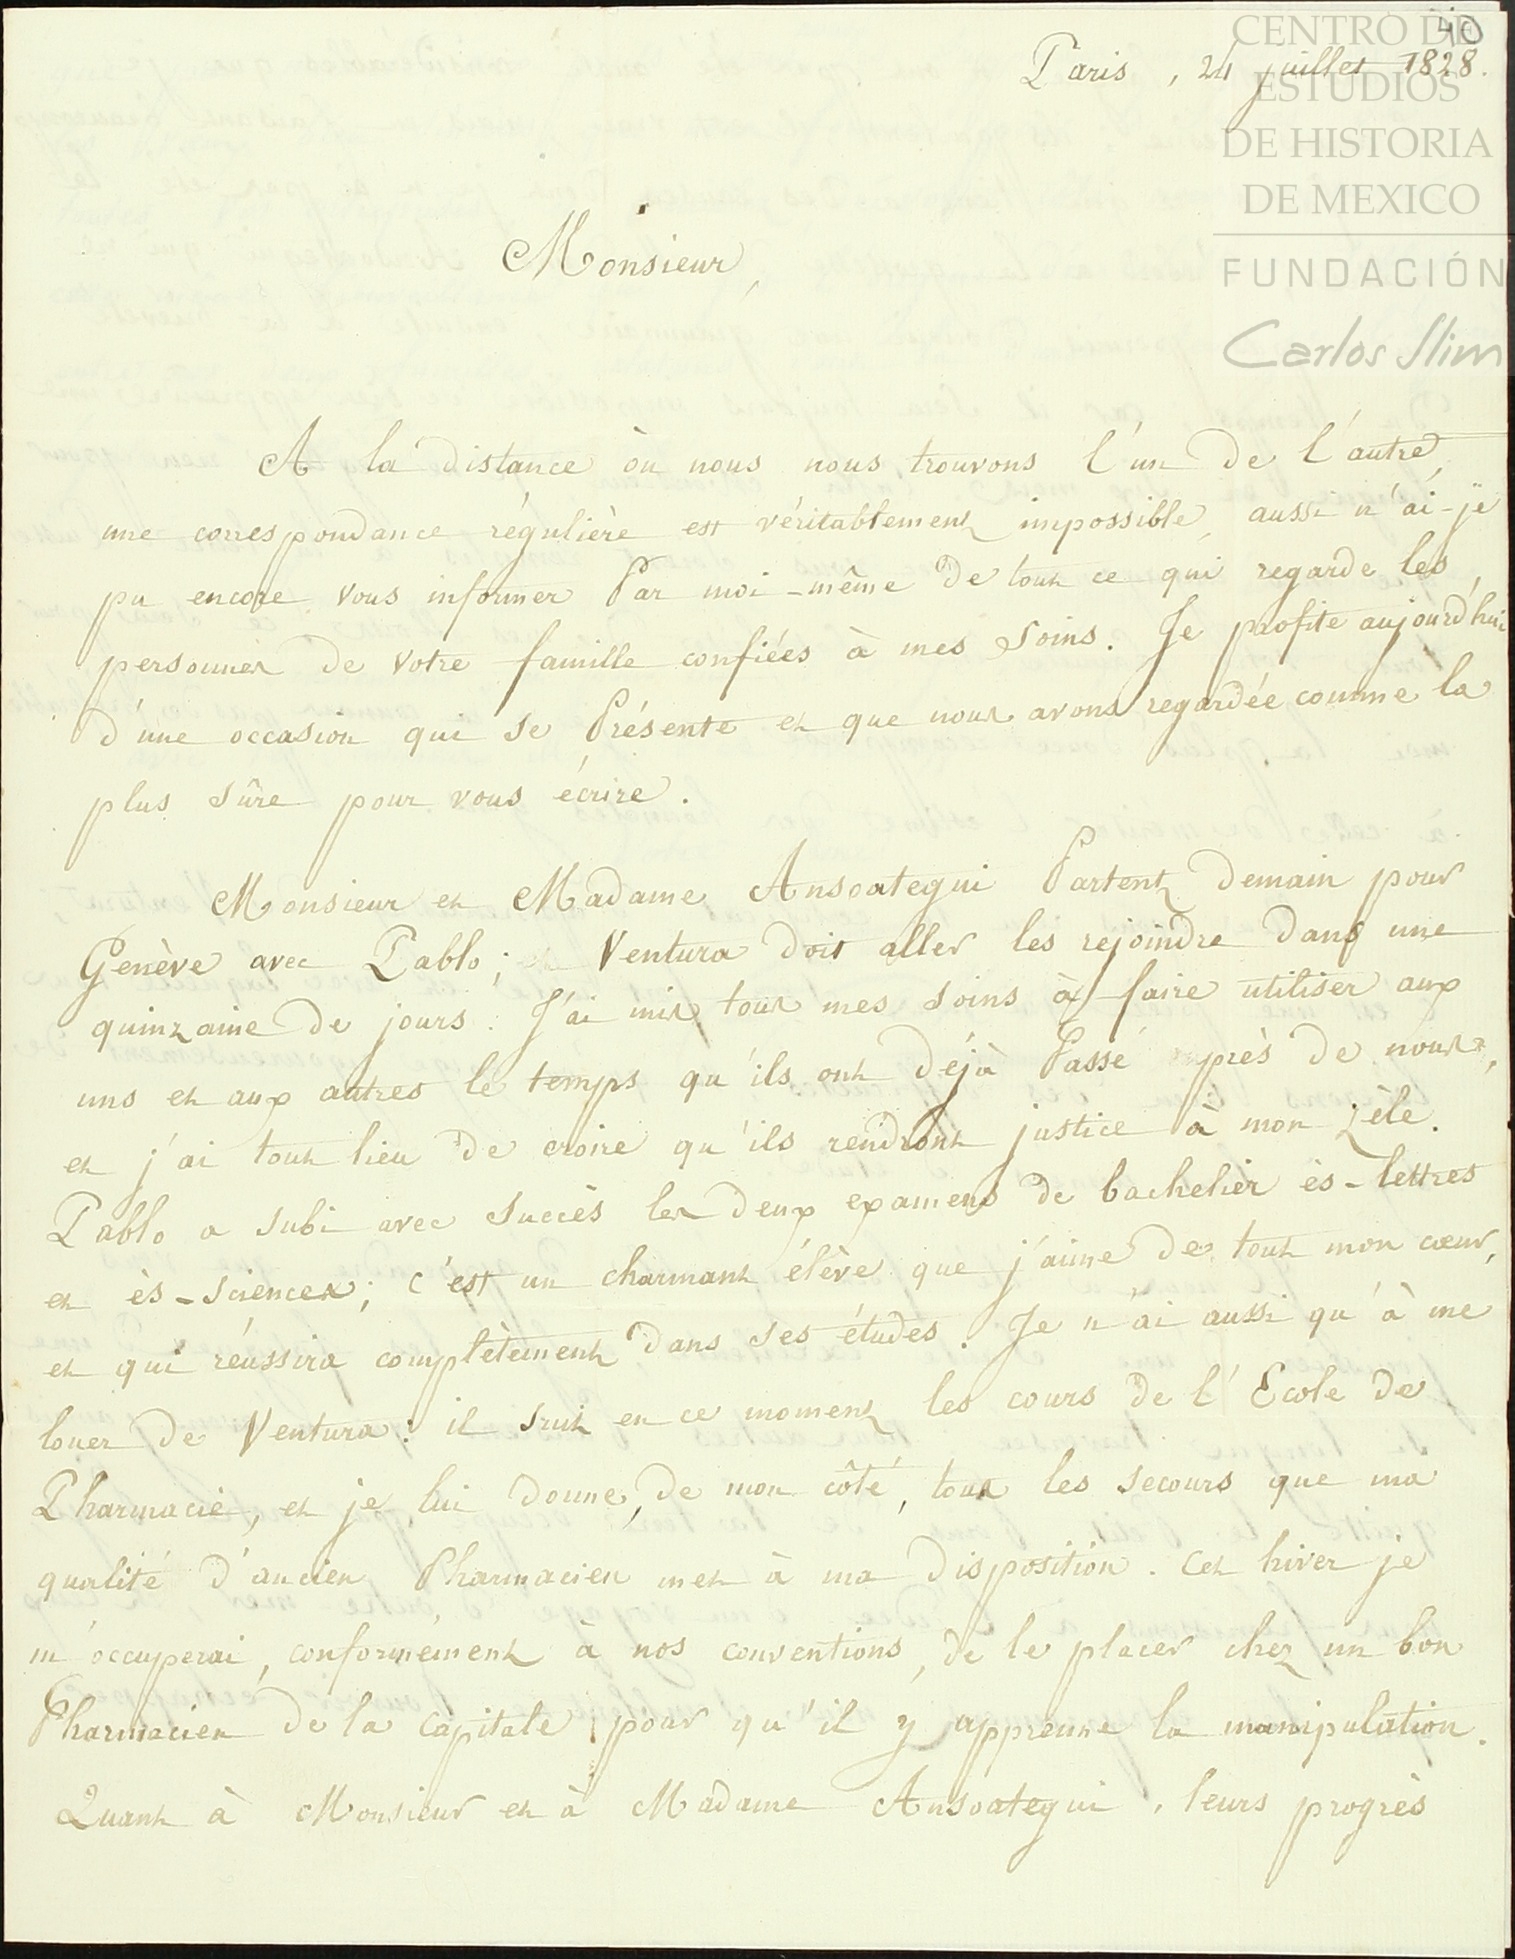 40
Paris, 24 juillet 1828.
CENTRO DE
ESTUDIOS
DE HISTORIA
DE MEXICO
FUNDACIÓN
Carlos Slim
Monsieur,
A la distance où nous nous trouvons l'un de l'autre,
une correspondance régulière est véritablement impossible, aussi n'ai-je
pu encore vous informer Par moi-même de tout ce qui regarde les
personnes de votre famille confiées à mes soins. Je profite aujourd'hui
d'une occasion qui se Présente et que nous avons regardée comme la
plus sûre pour vous écrire.
Monsieur et Madame Ansoategui Partent demain pour
Genève avec Pablo; Ventura doit aller les rejoindre dans une
quinzaine de jours. J'ai mis tous mes soins à faire utiliser aux
uns et aux autres le temps qu'ils ont déjà Passé après de nous,
et j'ai tout lieu de croire qu'ils rendront justice à mon zèle.
Pablo a subi avec succès les deux examens de bachelier ès-lettres
et ès-sciences; c'est un charmant élève que j'aime de tout mon cœur,
et qui réussira complètement dans ses études. Je n'ai aussi qu'à me
louer de Ventura: il suit en ce moment les cours de l'Ecole de
Pharmacie, et je lui donne, de mon côté, tous les secours que ma
qualité d'ancien Pharmacien met à ma disposition. Cet hiver je
m'occuperai, conformément à nos conventions, de le placer chez un bon
Pharmacien de la capitale pour qu'il y apprenne la manipulation.
Quant à Monsieur et à Madame Ansoategui, leurs progrès